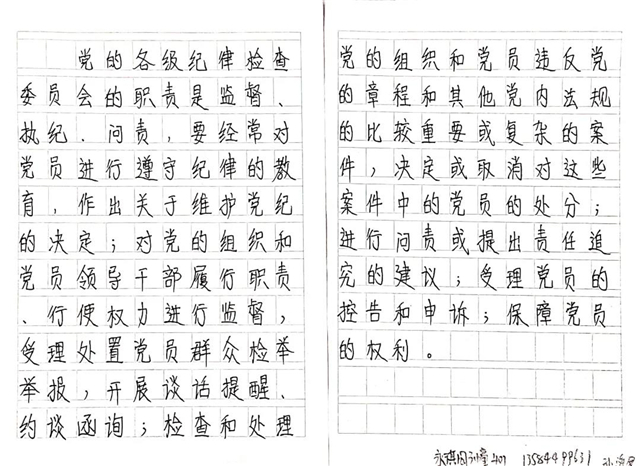 党的各级纪律检查
委员会的职责是监督、
执纪、问责，要经常对
党员进行遵守纪律的教
育，作出关于维护党纪
的决定；对党的组织和
党员领导干部履行职责
、行使权力进行监督，
受理处置党员群众检举
举报，开展谈话提醒、
约谈函询；检查和处理
党的组织和党员违反党
的章程和其他党内法规
的比较重要或复杂的案
件，决定或取消对这些
案件中的党员的处分；
进行问责或提出责任追
究的建议；受理党员的
控告和申诉；保障党员
的权利。
401 13584499631